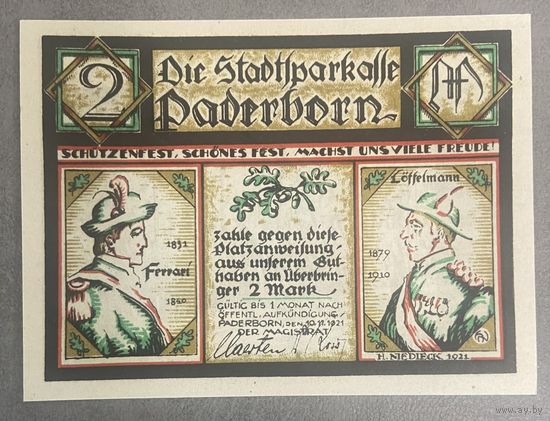 2
Die Stadtsparkasse
Paderborn
M
SCHÜTZENFEST, SCHÖNES FEST, MACHST UNS VIELE FREUDE!
1831
Ferrari
1840
zahle gegen diese
Platzanweisung
aus unserem Gut-
haben an Überbrin-
ger 2 Mark
GÜLTIG BIS 1 MONAT NACH
ÖFFENTL. AUFKÜNDIGUNG
PADERBORN, DEN 10.11.1921
DER MAGISTRAT
Löffelmann
1879
1910
H. NIEDIECK 1921
www.ay.by